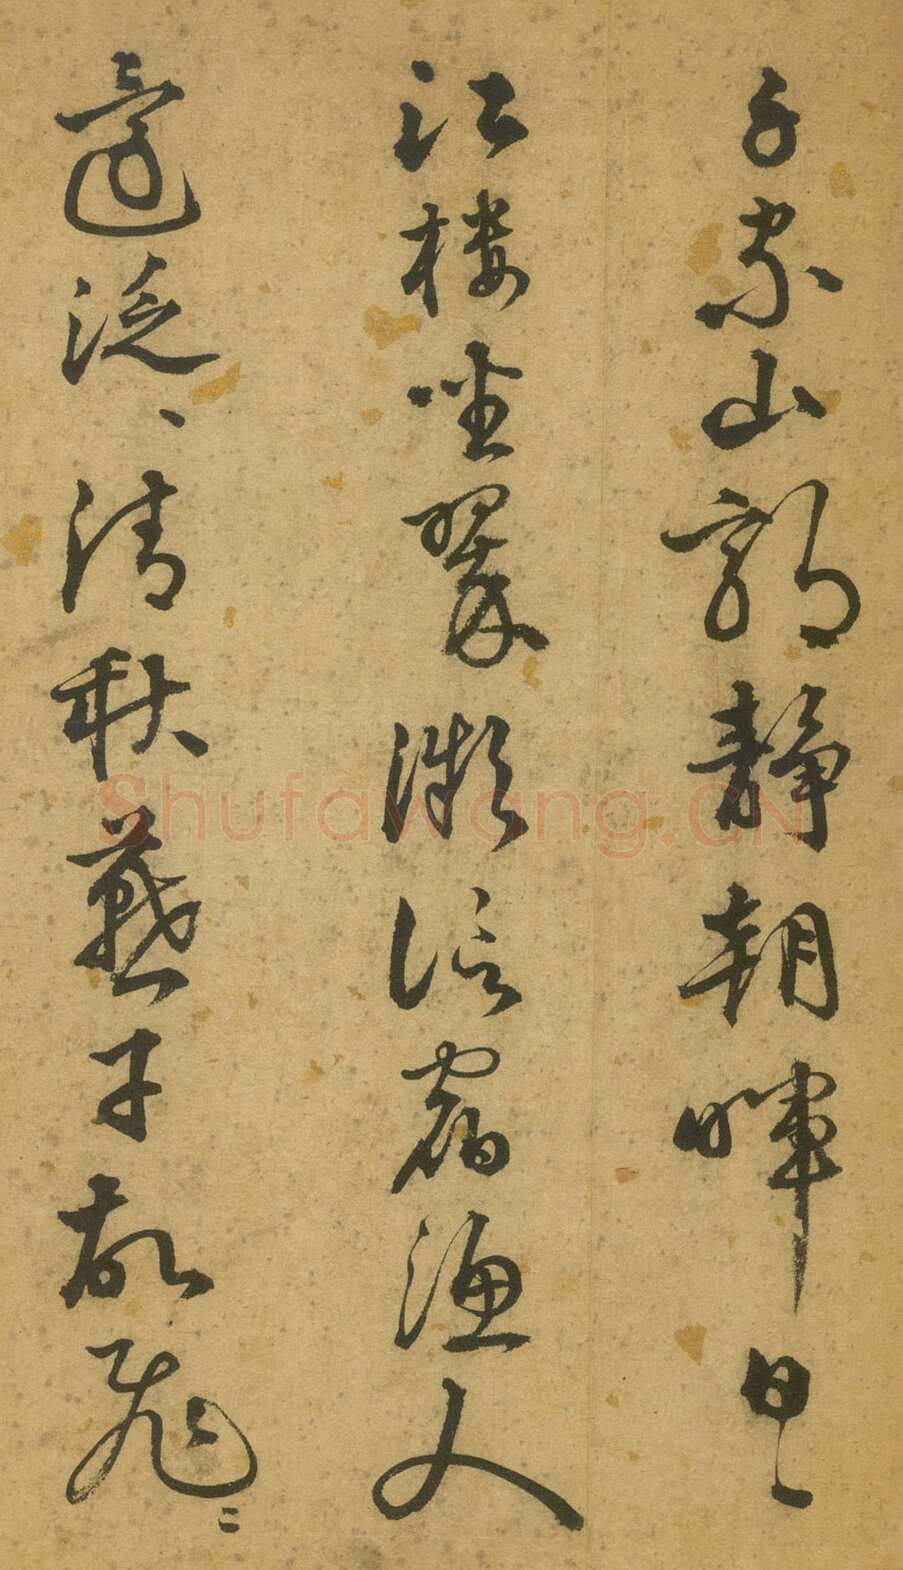 千家山郭靜朝暉日〻
江樓坐翠微信宿漁人
還泛〻清秋燕子故飛〻
Shufawang.CN